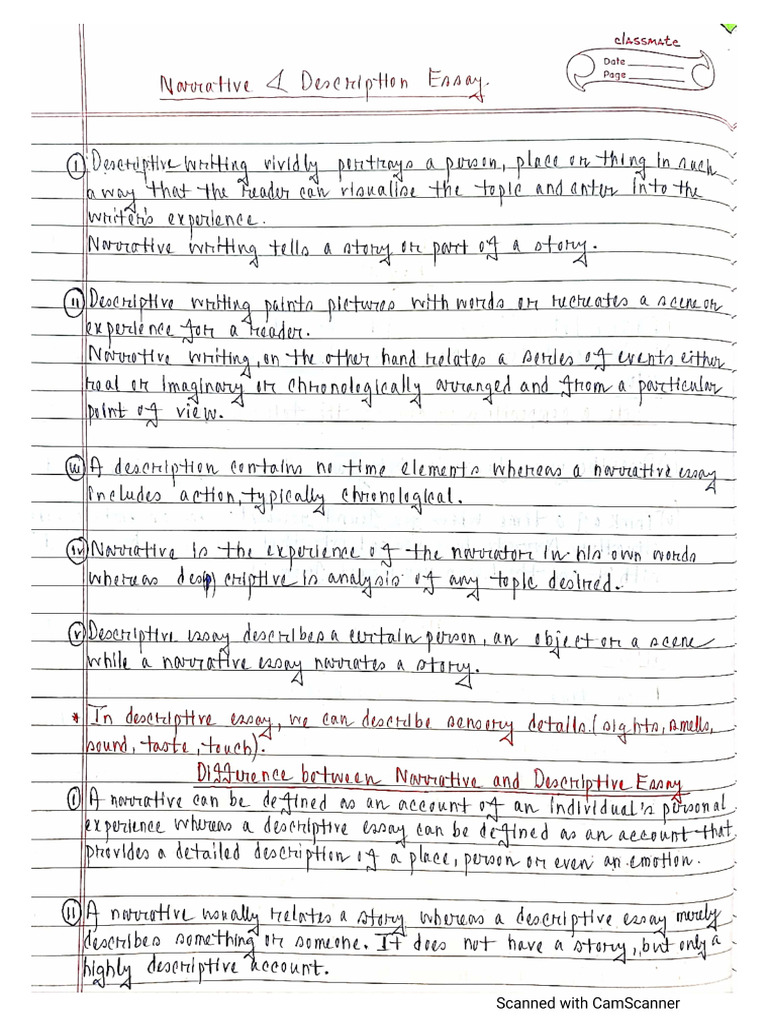 classmate
Date
Page
Narrative & Description Essay.
(i) Descriptive writing vividly portrays a person, place or thing in such
a way that the reader can visualise the topic and enter into the
writer's experience.
Narrative writing tells a story or part of a story.
(ii) Descriptive writing paints pictures with words or recreates a scene or
experience for a reader.
Narrative writing, on the other hand relates a series of events either
real or imaginary or chronologically arranged and from a particular
point of view.
(iii) A description contains no time elements whereas a narrative essay
includes action, typically chronological.
(iv) Narrative is the experience of the narrator in his own words
whereas descriptive is analysis of any topic desired.
(v) Descriptive essay describes a certain person, an object or a scene
while a narrative essay narrates a story.
* In descriptive essay, we can describe sensory details. (sights, smells,
sound, taste, touch).
Difference between Narrative and Descriptive Essay
(i) A narrative can be defined as an account of an individual's personal
experience whereas a descriptive essay can be defined as an account that
provides a detailed description of a place, person or even an emotion.
(ii) A narrative usually relates a story whereas a descriptive essay merely
describes something or someone. It does not have a story, but only a
highly descriptive account.
Scanned with CamScanner